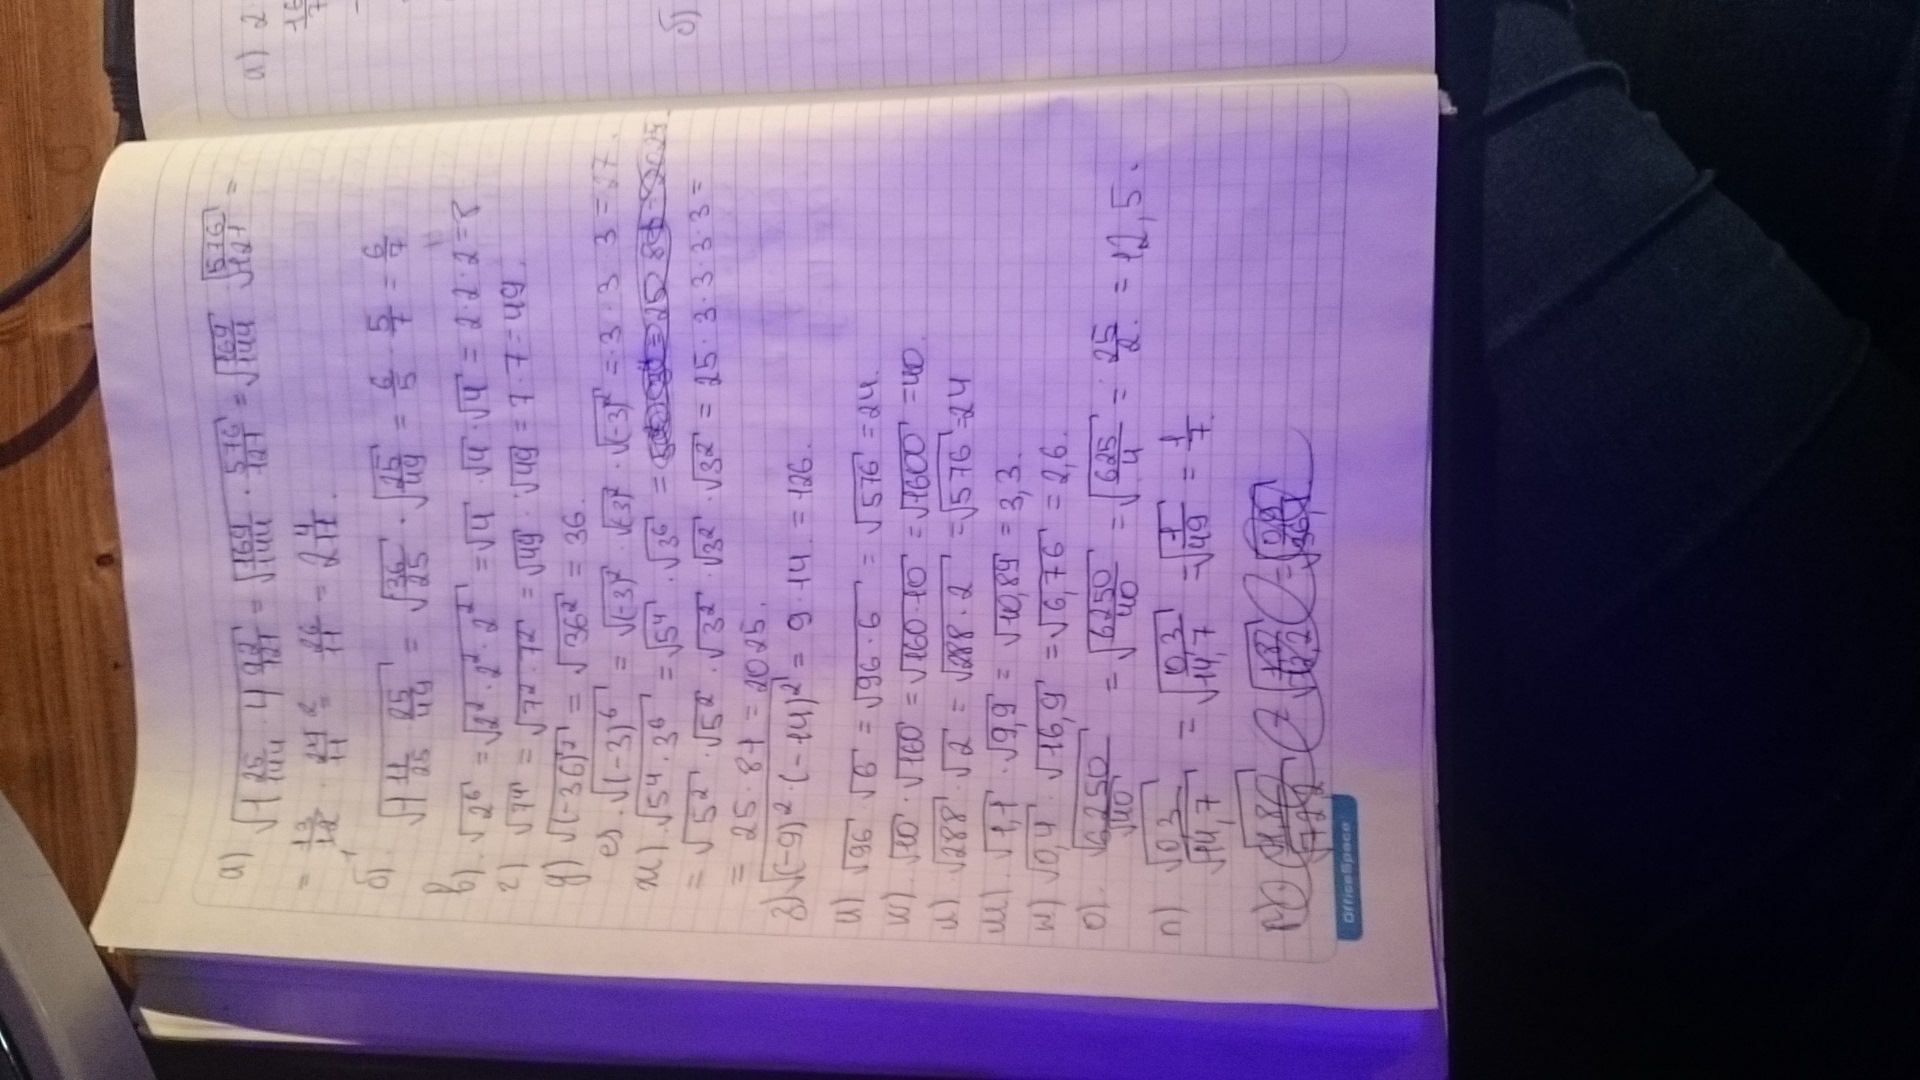 а) √(1 25/144 · 4 92/121) = √(169/144 · 576/121) = √(169/144) √(576/121) =
= 13/12 · 24/11 = 26/11 = 2 4/11.
б). √(1 11/25 · 25/49) = √(36/25) · √(25/49) = 6/5 · 5/7 = 6/7
в). √2⁶ = √(2² · 2² · 2²) = √4 · √4 · √4 = 2 · 2 · 2 = 8
г) √7⁴ = √(7² · 7²) = √49 · √49 = 7 · 7 = 49.
д) √(-36)² = √36² = 36.
е). √(-3)⁶ = √(-3)² · √(-3)² · √(-3)² = 3 · 3 · 3 = 27.
ж). √(5⁴ · 3⁶) = √5⁴ · √3⁶ =
= √5² · √5² · √3² · √3² · √3² = 25 · 3 · 3 · 3 · 3 =
= 25 · 81 = 2025.
з) √((-9)² · (-14)²) = 9 · 14 = 126.
и) √96 · √6 = √(96 · 6) = √576 = 24.
√10 · √160 = √(160 · 10) = √1600 = 40.
л) √288 · √2 = √(288 · 2) = √576 = 24
м). √1,1 · √9,9 = √10,89 = 3,3.
н) √0,4 · √16,9 = √6,76 = 2,6.
о). √6250/√40 = √(6250/40) = √(625/4) = 25/2 = 12,5.
п). √0,3/√14,7 = √(0,3/14,7) = √(1/49) = 1/7.
OfficeSpace
а) 2
16/7
б)